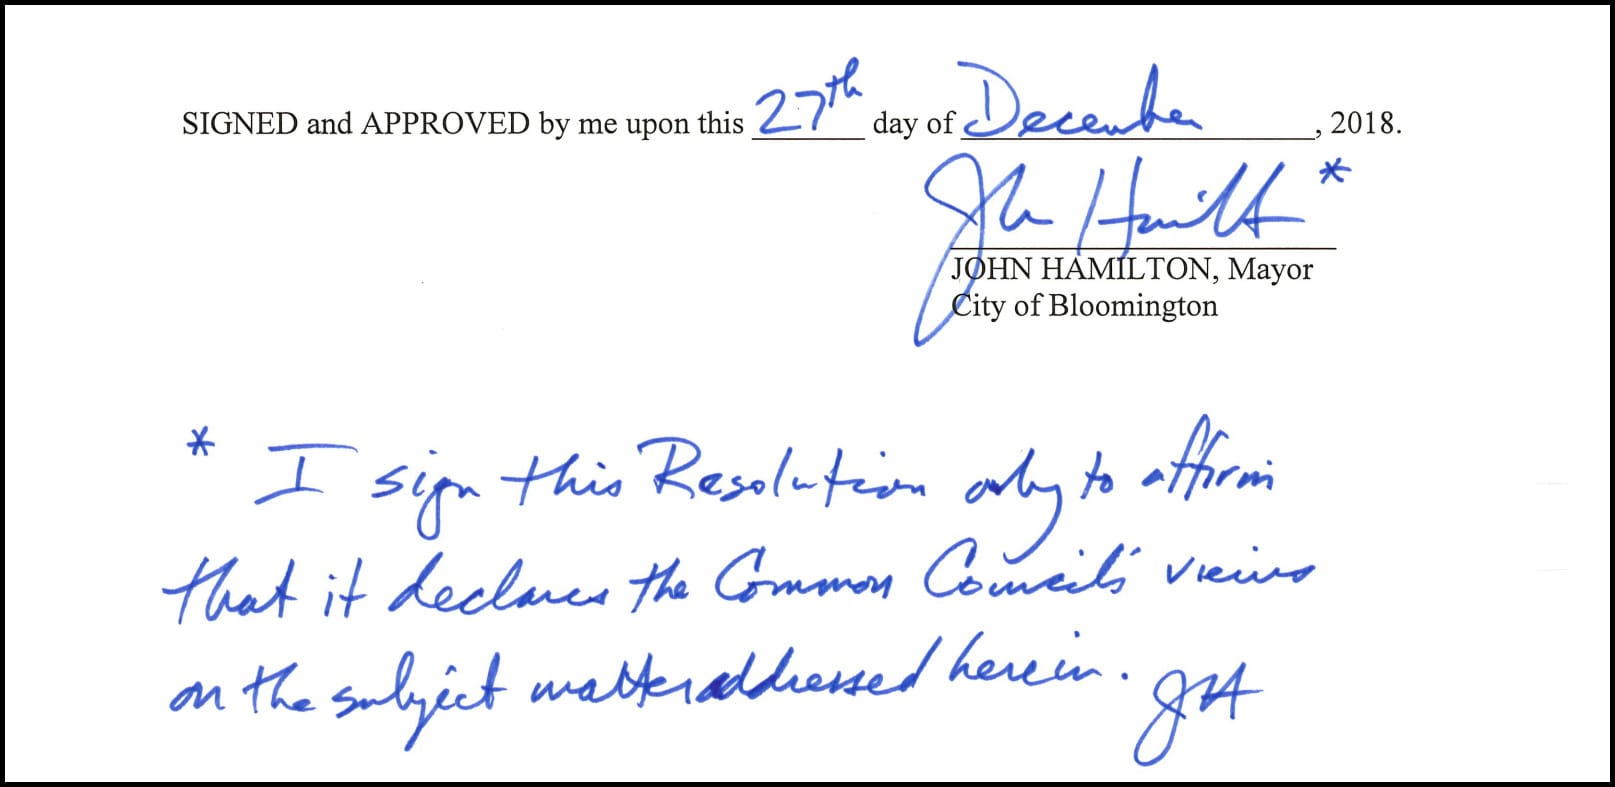 SIGNED and APPROVED by me upon this 27th day of December, 2018.
John Hamilton *
JOHN HAMILTON, Mayor
City of Bloomington
* I sign this Resolution only to affirm
that it declares the Common Council's views
on the subject matter addressed herein. JH